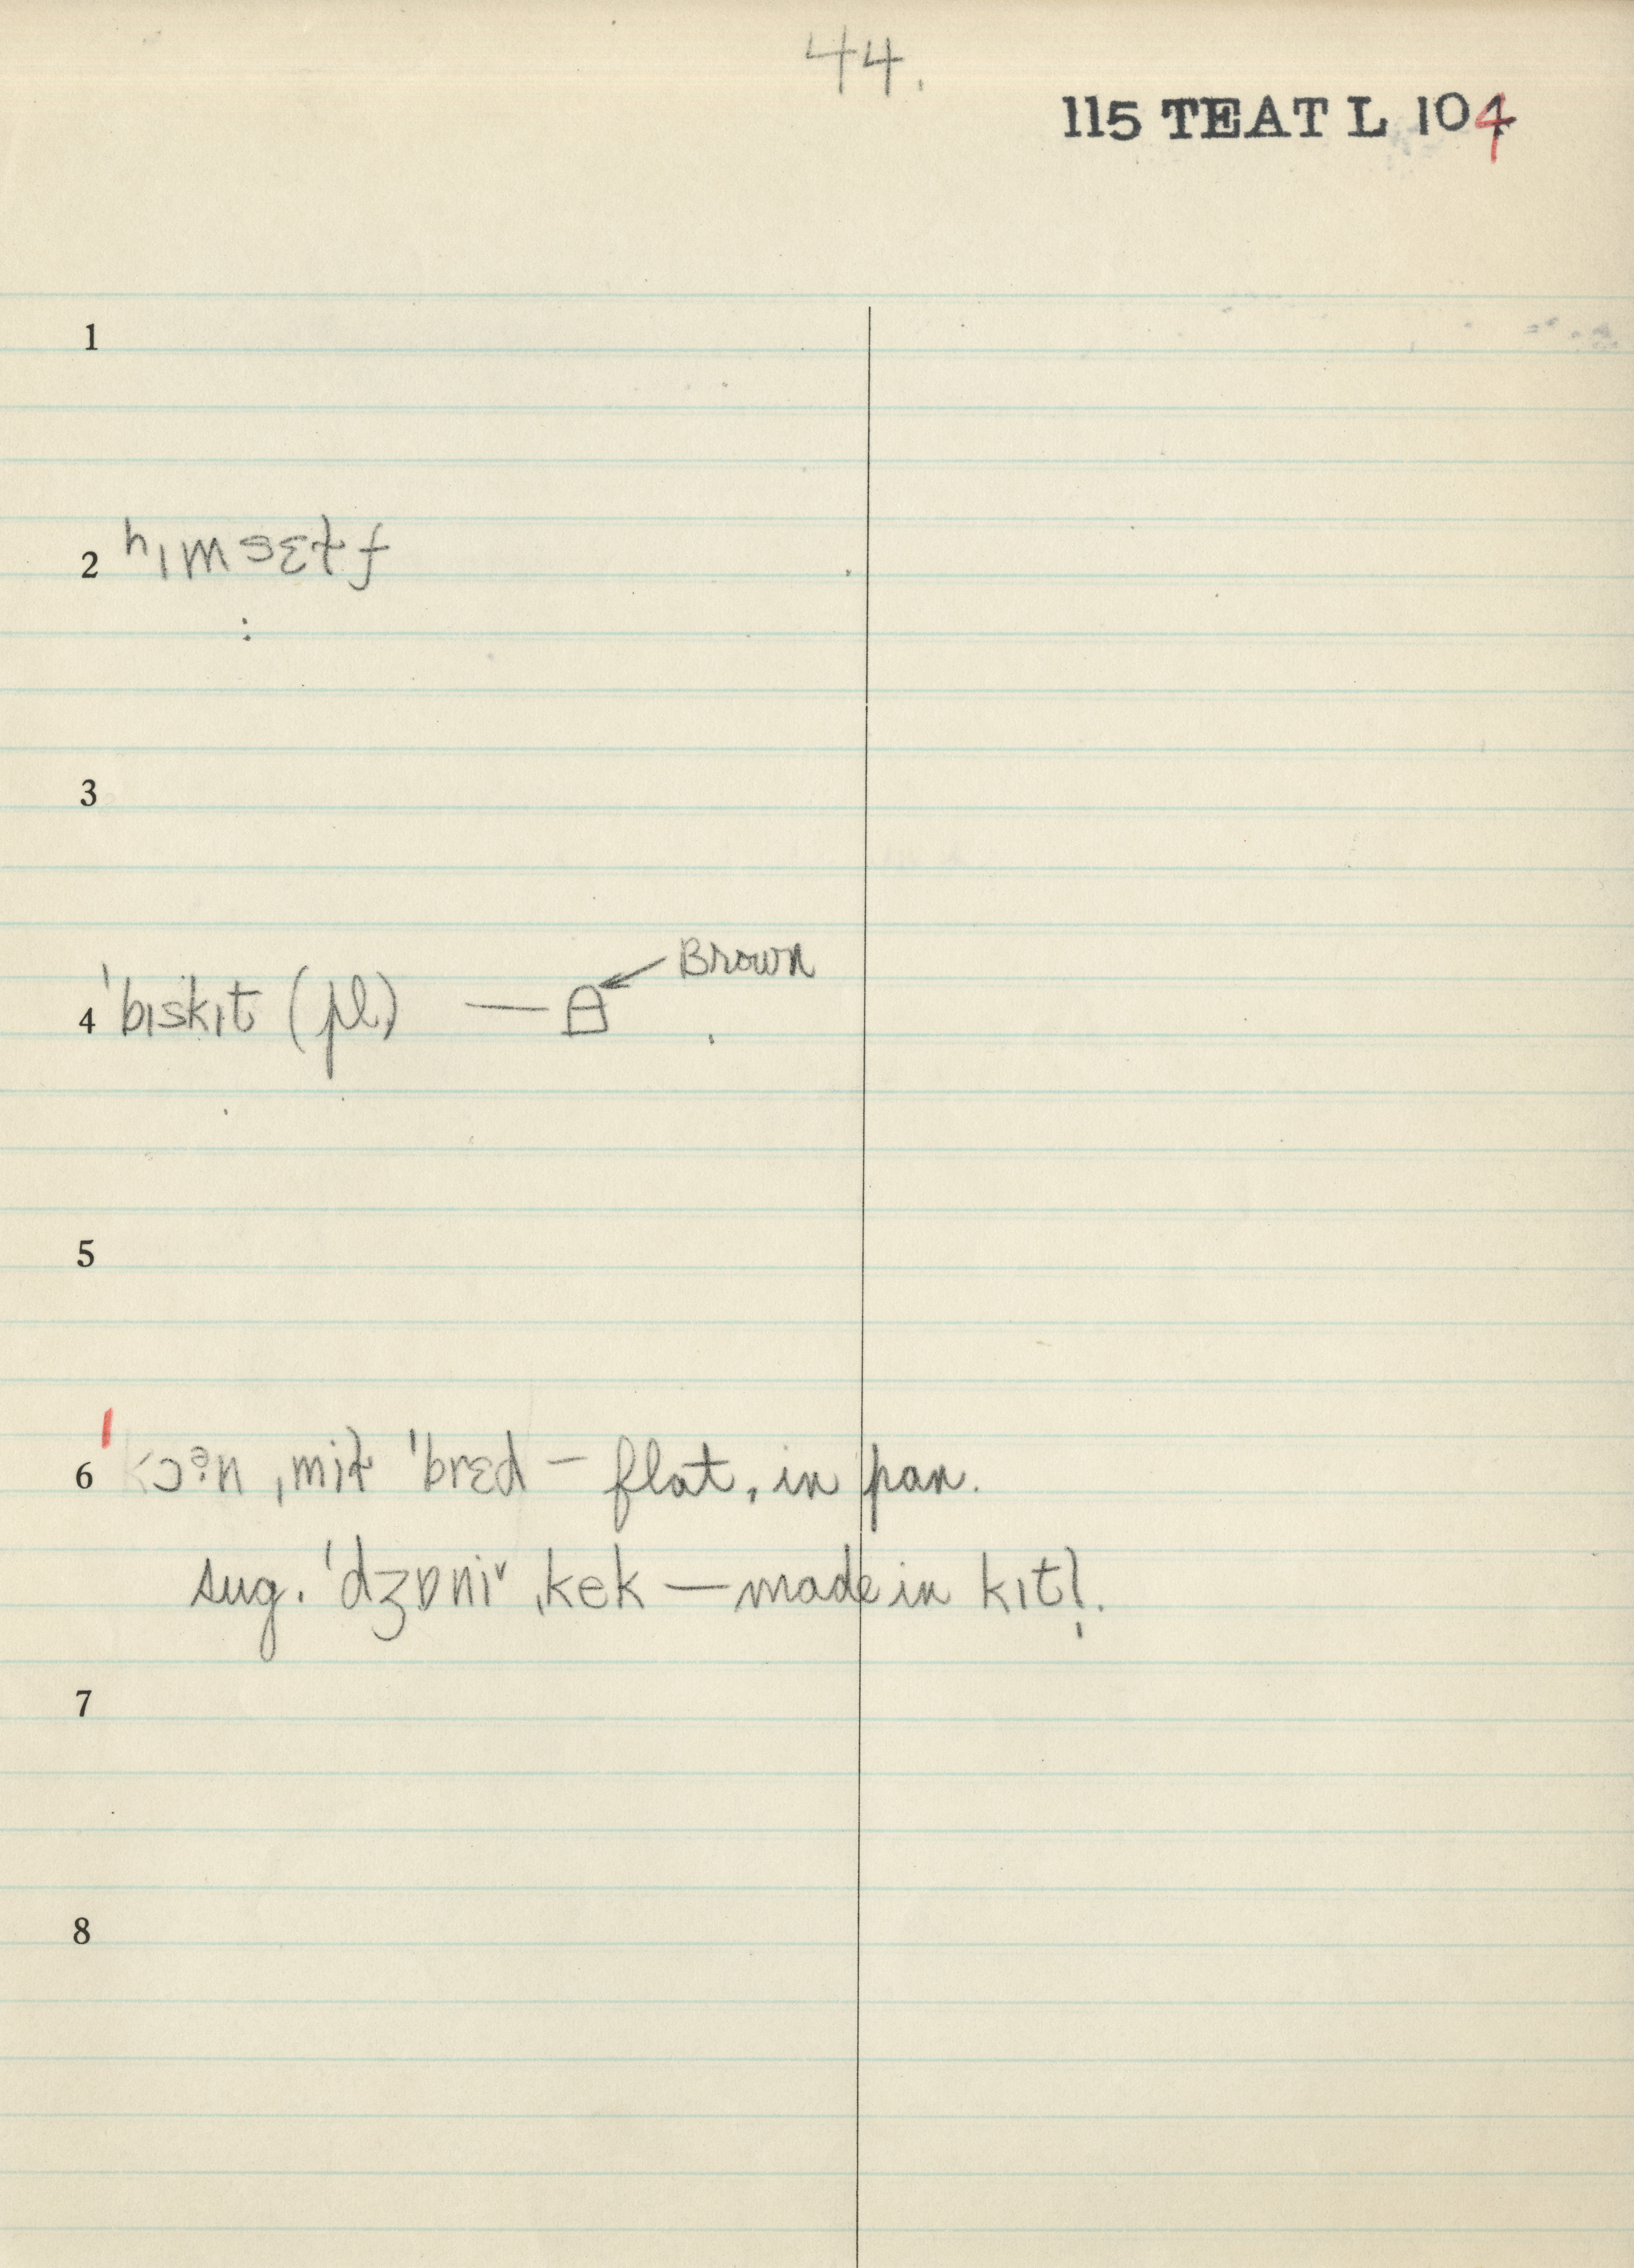 44.
115 TEAT L 104
1
2 hɪmsɛɫf
:
3
Brown
4 ˈbɪskɪt (pl.) —
5
6 ˈkɔᵊ·n ˌmiɫ ˈbrɛd — flat, in pan.
sug. ˈdʒɒni˅ ˌkek — made in kɪtl̩.
7
8